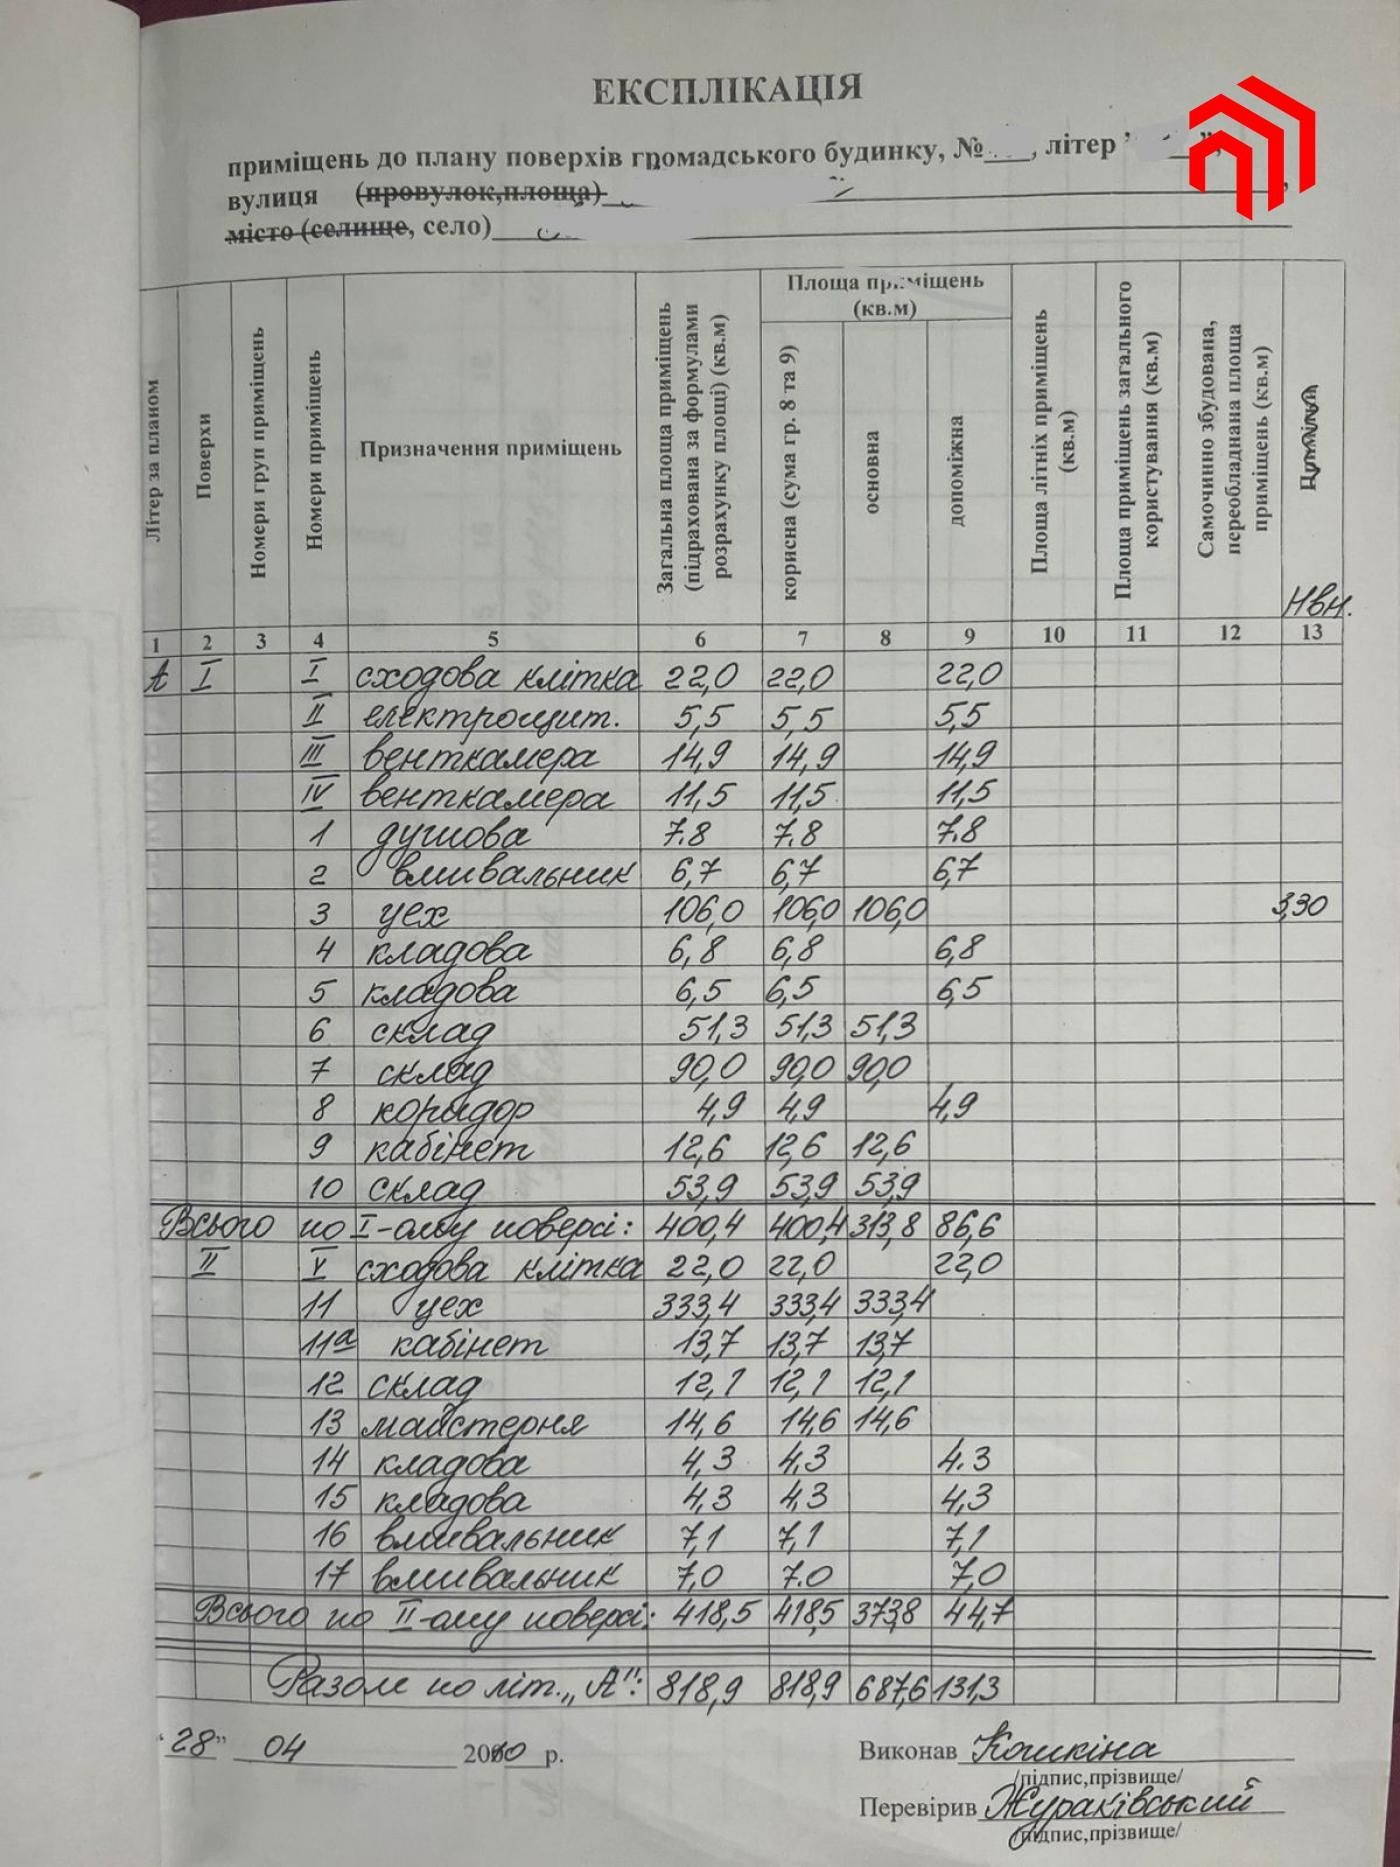 ЕКСПЛІКАЦІЯ
приміщень до плану поверхів громадського будинку, № , літер ” ”,
вулиця (провулок,площа)
місто (селище, село)
Літер за планом
Поверхи
Номери груп приміщень
Номери приміщень
Призначення приміщень
Загальна площа приміщень (підрахована за формулами розрахунку площі) (кв.м)
Площа приміщень (кв.м)
корисна (сума гр. 8 та 9)
основна
допоміжна
Площа літніх приміщень (кв.м)
Площа приміщень загального користування (кв.м)
Самочинно збудована, переобладнана площа приміщень (кв.м)
Нвн.
1 2 3 4 5 6 7 8 9 10 11 12 13
А I I сходова клітка 22,0 22,0 22,0
II електрощит. 5,5 5,5 5,5
III венткамера 14,9 14,9 14,9
IV венткамера 11,5 11,5 11,5
1 душова 7.8 7.8 7.8
2 вмивальник 6,7 6,7 6,7
3 цех 106,0 106,0 106,0 3,30
4 кладова 6,8 6,8 6,8
5 кладова 6,5 6,5 6,5
6 склад 51,3 51,3 51,3
7 склад 90,0 90,0 90,0
8 коридор 4,9 4,9 4,9
9 кабінет 12,6 12,6 12,6
10 склад 53,9 53,9 53,9
Всього по I-ому поверсі: 400,4 400,4 313,8 86,6
II V сходова клітка 22,0 22,0 22,0
11 цех 333,4 333,4 333,4
11а кабінет 13,7 13,7 13,7
12 склад 12,1 12,1 12,1
13 майстерня 14,6 14,6 14,6
14 кладова 4,3 4,3 4.3
15 кладова 4,3 4,3 4,3
16 вмивальник 7,1 7,1 7,1
17 вмивальник 7,0 7.0 7,0
Всього по II-ому поверсі: 418,5 418,5 373,8 44,7
Разом по літ. „А": 818,9 818,9 687,6 131,3
“28” 04 2010 р.
Виконав Кошкіна
/підпис,прізвище/
Перевірив Жураківський
/підпис,прізвище/